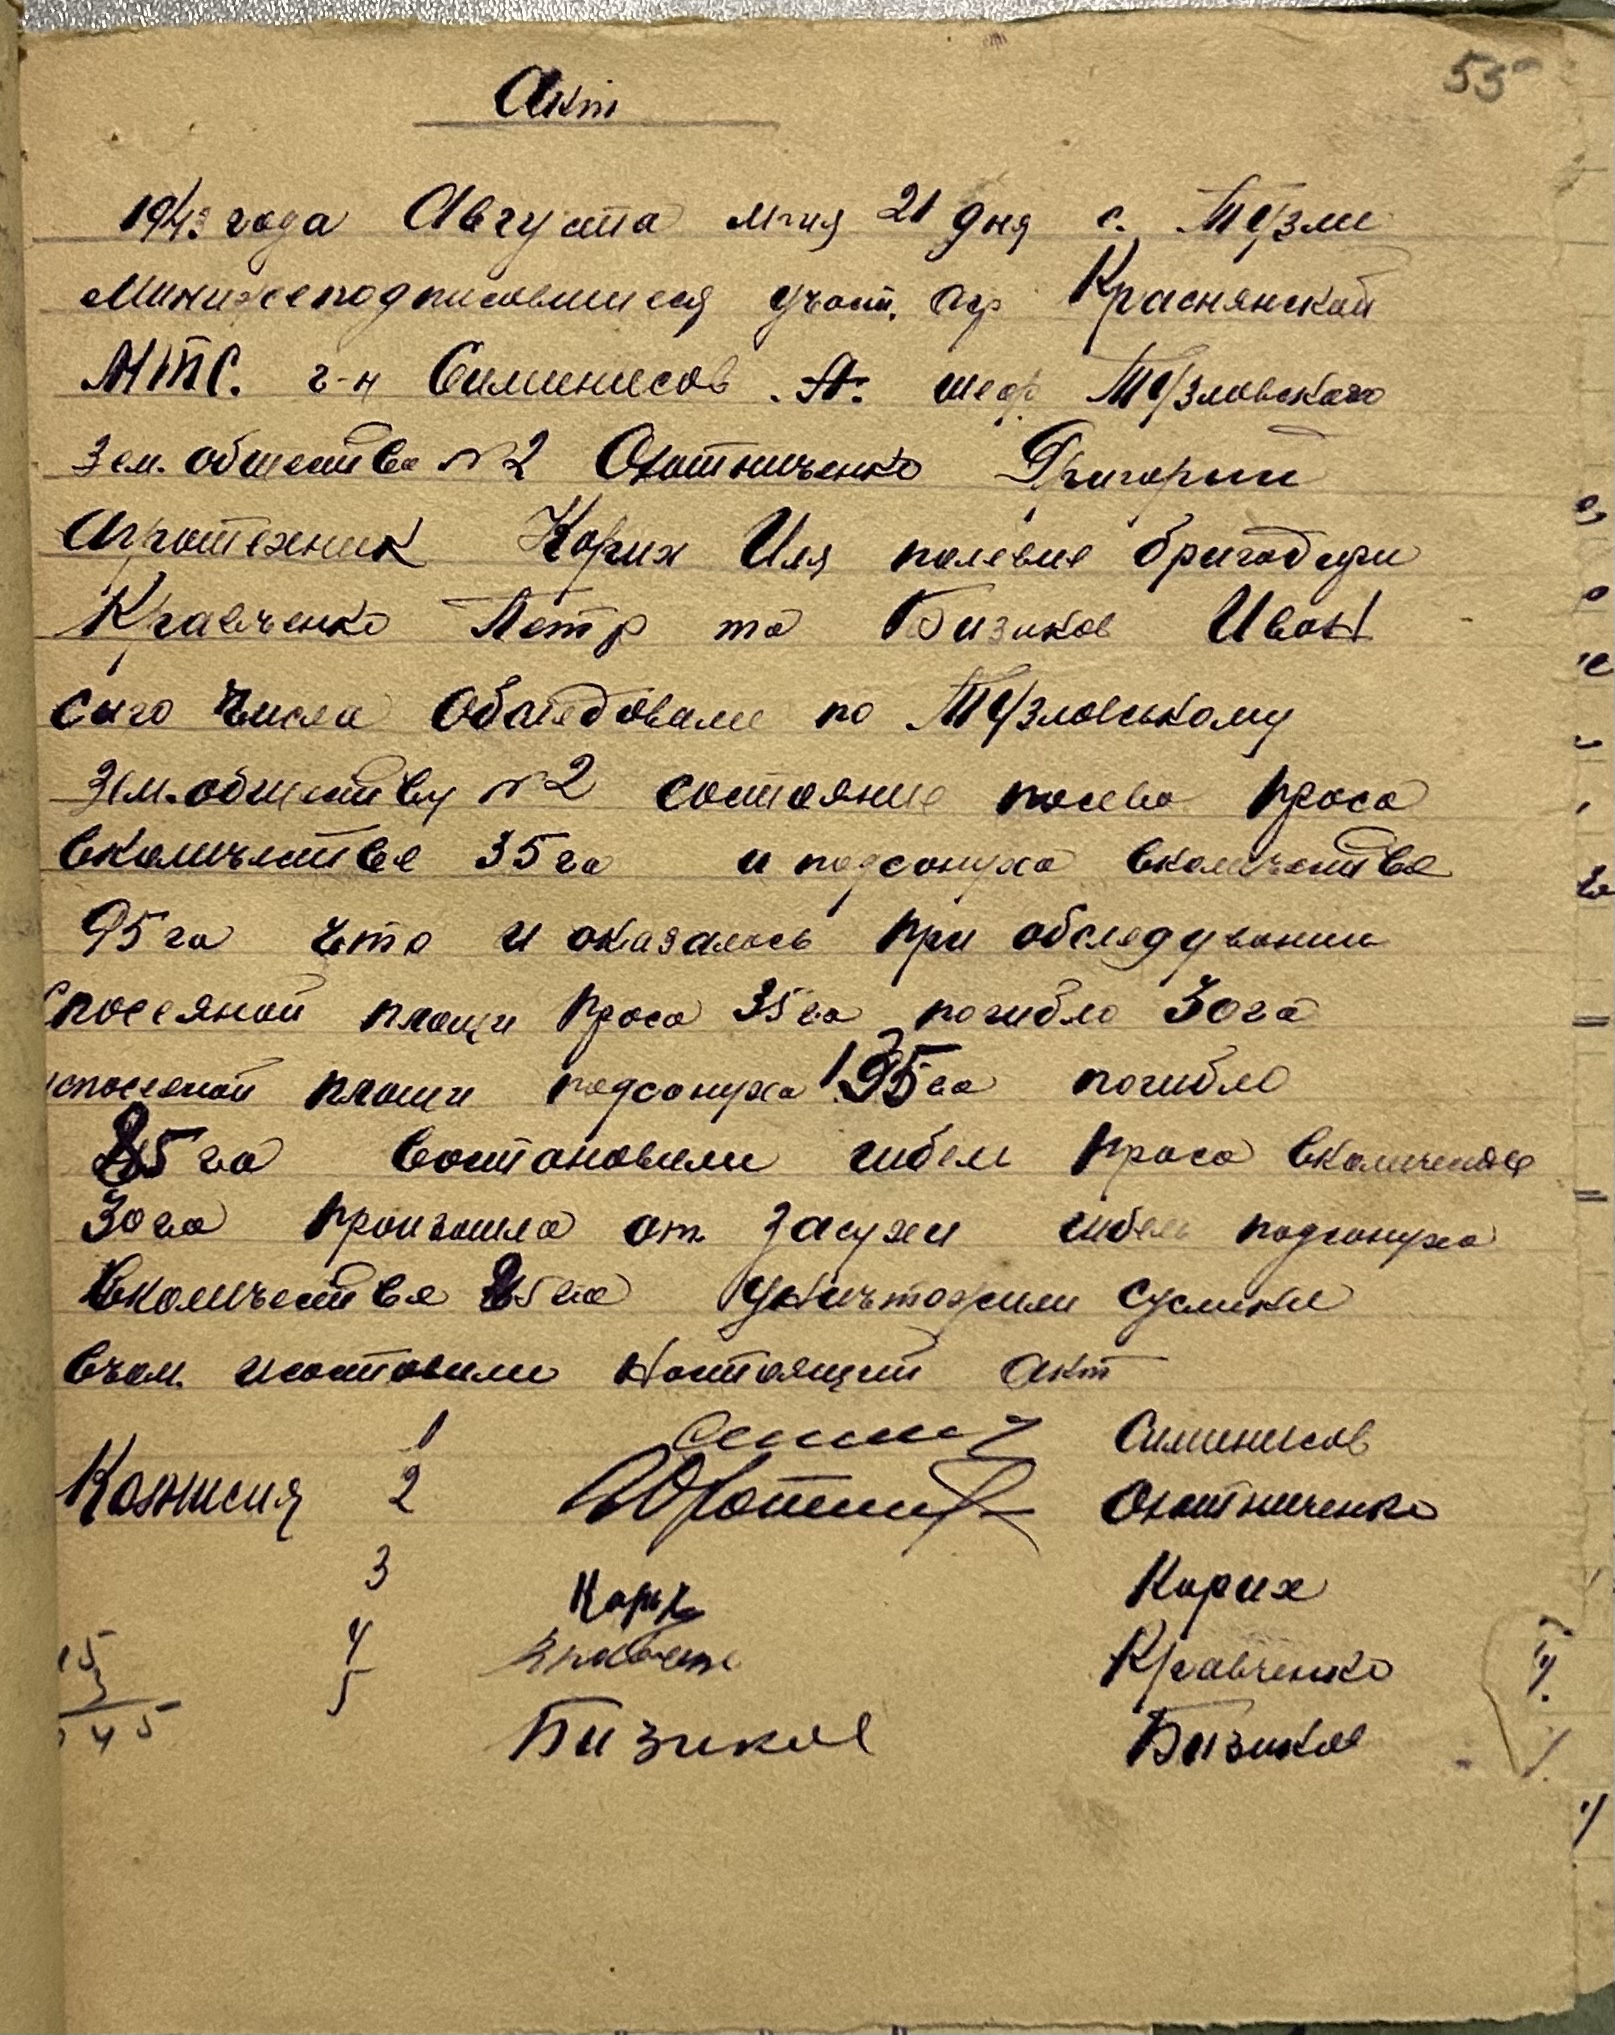 55
Акт
1943 года Августа м-ця 21 дня с. Тузли
Минижеподписовшиеся участ. агр Краснянской
МТС. г-н Симинисов А. шеф Тузловского
Зем. общества №2 Охотниченко Григорий
Агротехник Корих Иля полевые бригадири
Кравченко Петр та Бизиков Иван
сего числа обследовали по Тузловському
Зем. обществу №2 состояние посева проса
вколичестве 35 га и подсонуха вколичестве
95 га что и оказалось при обследувании
Споссяной площи проса 35 га погибло 30 га
испосеяной площи подсонуха 95 га погибло
85 га Состановили гибель проса вколичестве
30 га произошла от засухи гибель подсонуха
вколичестве 85 га уничтожили суслики
вчом исоставили настоящий акт
1 Симинисов
Комисия 2 Охотниченко
3 Корих Корих
4 Кравченко
5 Бизиков Бизиков